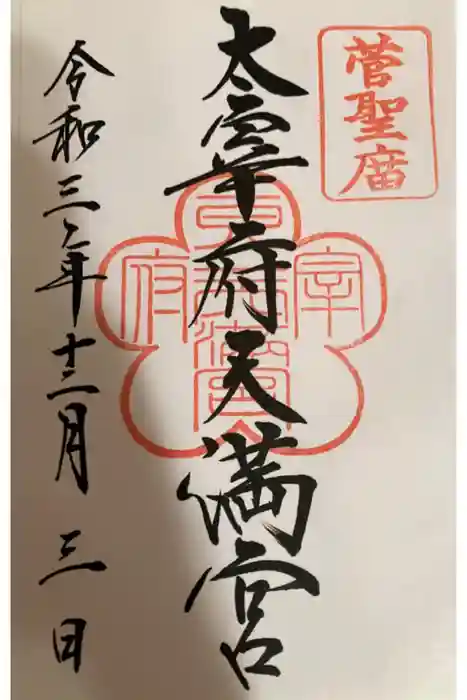 菅聖廟
太宰府天満宮
令和三年十二月三日